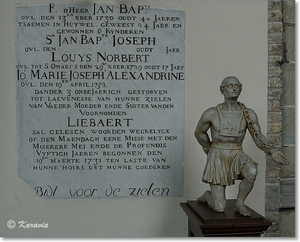 F. d'Heer JAN BAPte
OVL. DEN 13 XBER 1730 OUDT 42 JAEREN
TSAEMEN IN HUYWEL. GEWEEST 24 JAER EN
GEWONNEN 6 KYNDEREN
Sr JAN BAPte JOSEPH
OVL. DEN OUDT JAER
LOUYS NORBERT
OVL. TOT S. OMAERS DEN 29 XBER 1720 OUDT 17 JAER
Jo MARIE JOSEPH ALEXANDRINE
OVL. DEN 19 APRIL 1752.
DANDER 3 ONBEJAERICH GESTORVEN
TOT LAEVENESSE VAN HUNNE ZIELEN
VAN VAEDER MOEDER ENDE SISTER VANDEN
VOORNOMDEN
LIEBAERT
SAL GELESEN WOORDEN WECKELYCX
OP DEN MAENDACH EENE MISSE MET DEN
MISERERE MEI ENDE DE PROFUNDIS
VYFTICH JAEREN BEGONNEN DEN
10 MAERTE 1731 TEN LASTE VAN
HUNNE HOIRS UYT HUNNE GOEDEREN
Bidt voor de zielen
© Karavia